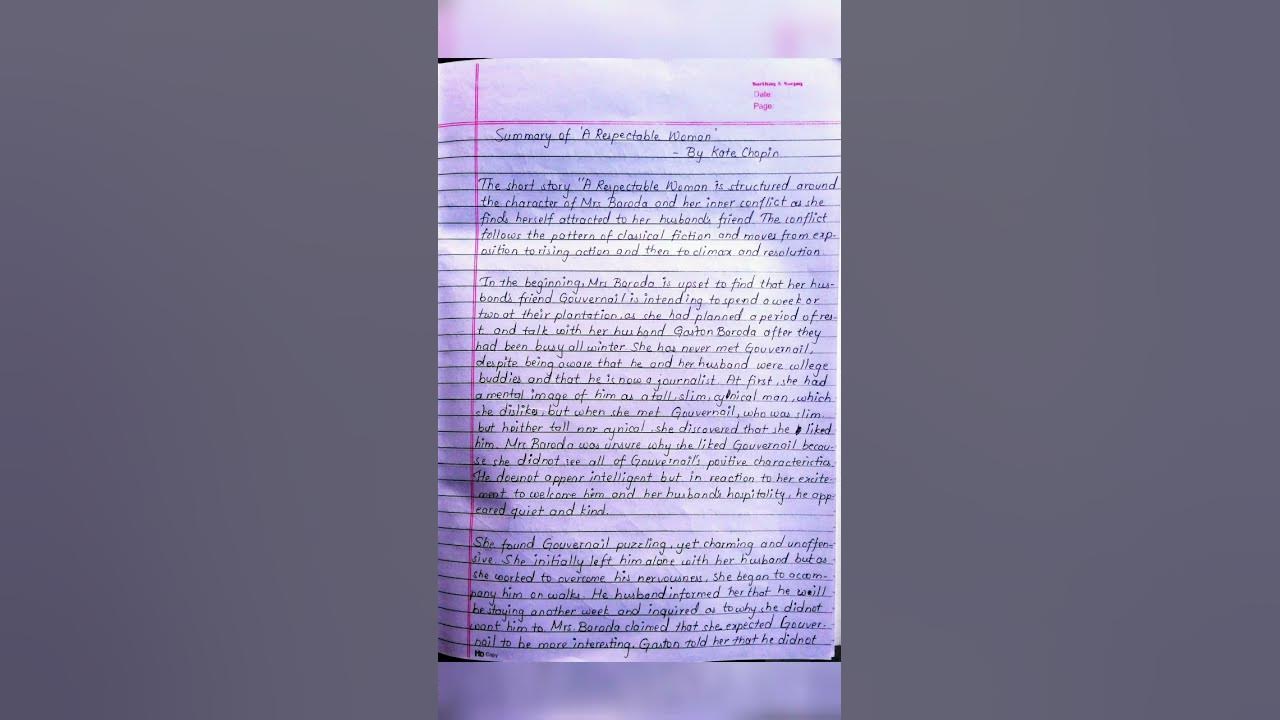 Date:
Page:
Summary of 'A Respectable Woman'
- By Kate Chopin
The short story "A Respectable Woman is structured around
the character of Mrs Baroda and her inner conflict as she
finds herself attracted to her husband's friend. The conflict
follows the pattern of classical fiction and moves from exp-
osition to rising action and then to climax and resolution.
In the beginning, Mrs Baroda is upset to find that her hus-
band's friend Gouvernail is intending to spend a week or
two at their plantation, as she had planned a period of res-
t and talk with her husband Gaston Baroda after they
had been busy all winter. She has never met Gouvernail,
despite being aware that he and her husband were college
buddies and that he is now a journalist. At first, she had
a mental image of him as a tall, slim, cynical man, which
she dislikes, but when she met Gouvernail, who was slim
but neither tall nor cynical, she discovered that she liked
him. Mrs Baroda was unsure why she liked Gouvernail becau-
se she didnot see all of Gouvernail's positive characteristics.
He doesnot appear intelligent but in reaction to her excite-
ment to welcome him and her husband's hospitality, he app-
eared quiet and kind.
She found Gouvernail puzzling, yet charming and unoffen-
sive. She initially left him alone with her husband but as
she worked to overcome his nervousness, she began to accom-
pany him on walks. He husband informed her that he will
be staying another week and inquired as to why she didnot
want him to. Mrs. Baroda claimed that she expected Gouver-
nail to be more interesting. Gaston told her that he didnot